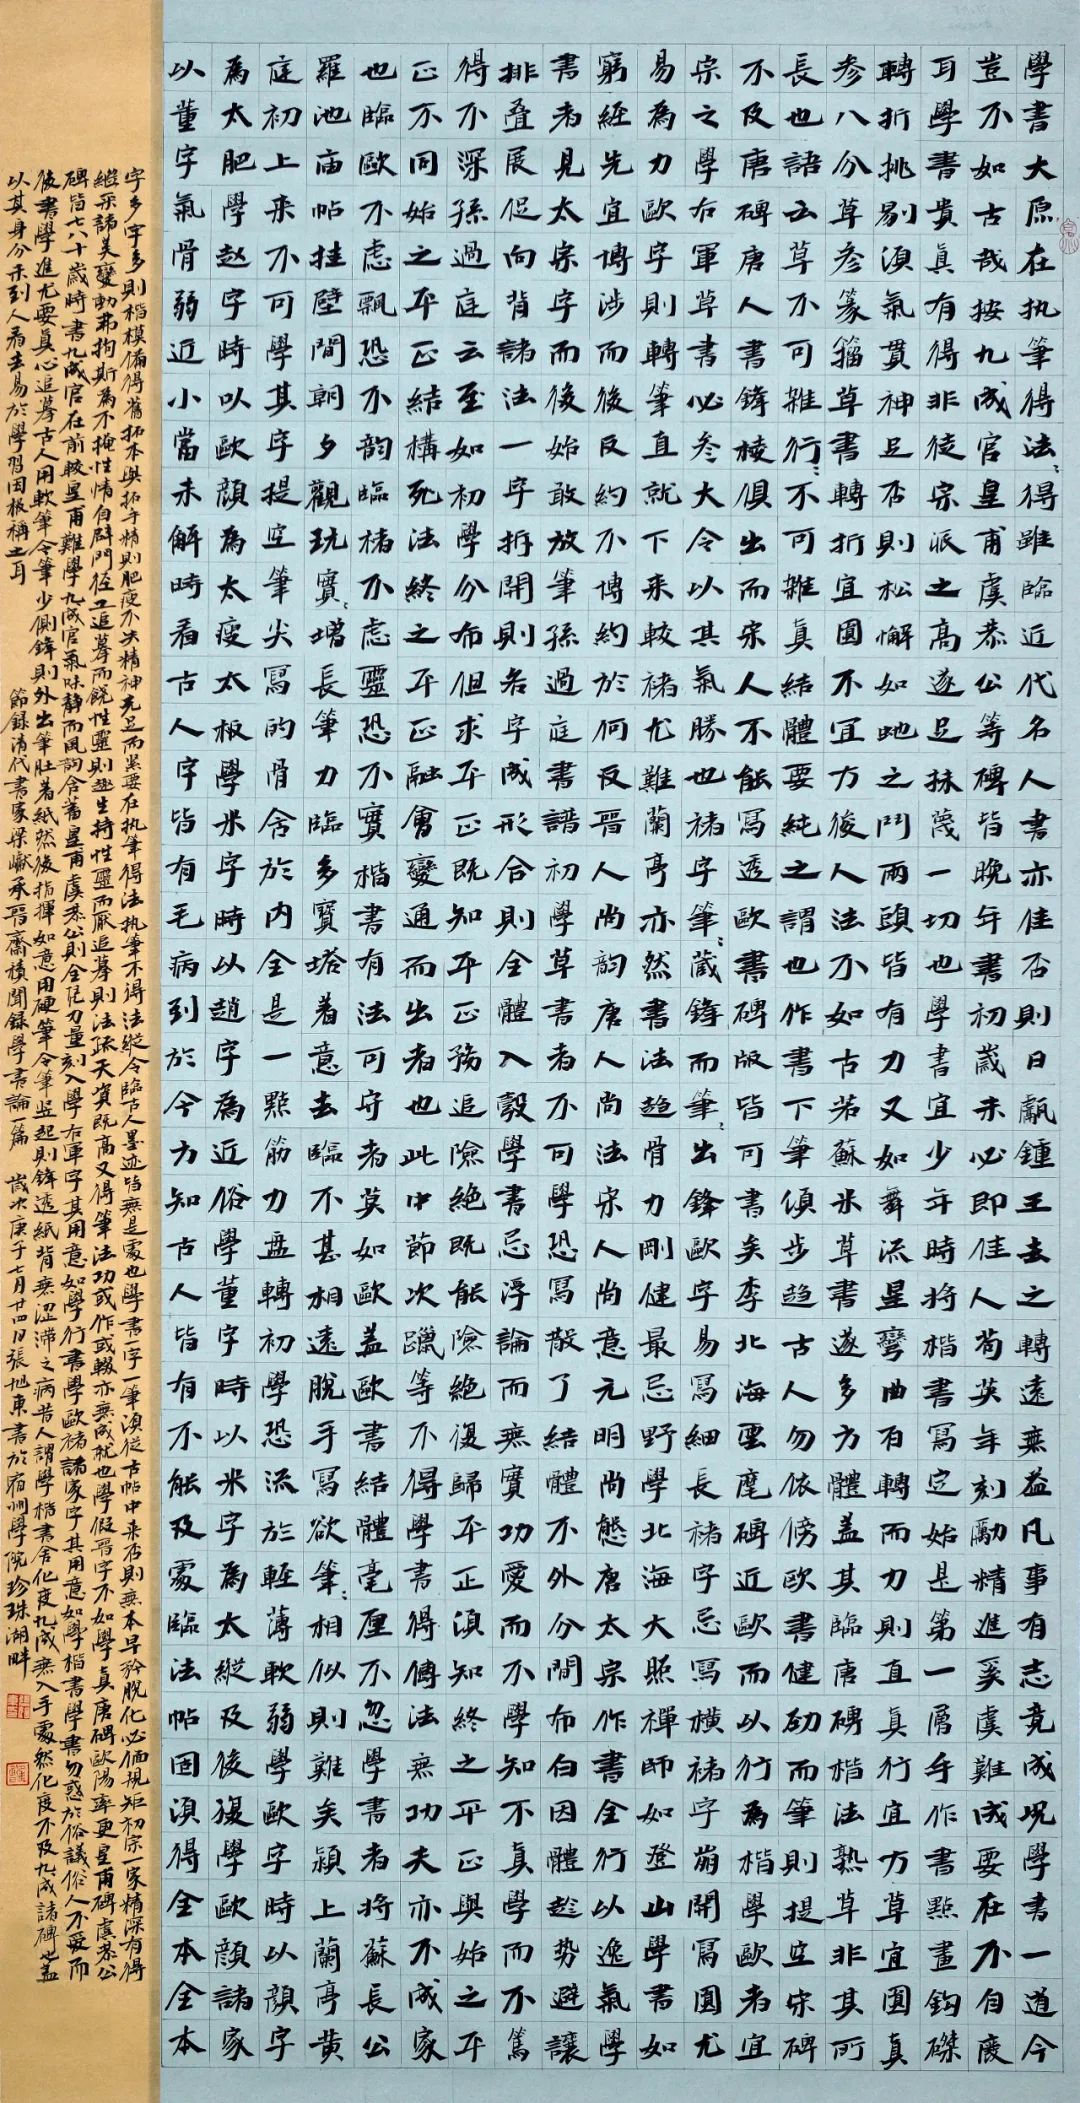 學書大原在执筆得法得雖臨近代名人書亦佳否則日臨鍾王去之轉遠無益凡事有志竟成况學書一道今
豈不如古哉按九成官皇甫虞恭公等碑皆晚年書初歲未必即佳人苟英年刻勵精進奚虞難成要在不自廢
耳學書貴真有得非徒宗派之高遂足抹蔑一切也學書宜少年時將楷書寫定始是第一層手作書點畫鈎磔
轉折挑剔須氣貫神足否則松懈如虵之鬥兩頭皆有力又如舞流星彎曲百轉而力則直真行宜方草宜圓真
参八分草參篆籀草書轉折宜圓不宜方後人法不如古若蘇米草書遂多方體盖其臨唐碑楷法熟草非其所
長也語云草不可雜行不可雜真結體要純之謂也作書下筆傾步趋古人勿依傍歐書健劲而筆則提空宋碑
不及唐碑唐人書鋒棱俱出而宋人不能寫透歐書碑版皆可書矣李北海雲麾碑近歐而以行為楷學歐者宜
宗之學右軍草書必叅大令以其氣勝也褚字筆藏鋒而筆出鋒歐字易寫細長褚字忌寫横褚字崩開寫圓尤
易為力歐字則轉筆直就下来較褚尤難蘭亭亦然書法趋骨力剛健最忌野學北海大照禪師如登山學書如
窮經先宜博涉而後反約不博約於何反晋人尚韵唐人尚法宋人尚意元明尚態唐太宗作書全行以逸氣學
書者見太宗字而後始敢放筆孫過庭書譜初學草書者不可學恐寫散了結體不外分間布白因體趁势避讓
排叠展促向背諸法一字拆開則各字成形合則全體入彀學書忌浮論而無實功愛而不學知不真學而不篤
得不深孫過庭云至如初學分布但求平正既知平正務追險絶既能險絶復歸平正須知終之平正與始之平
正不同始之平正結構死法終之平正融會變通而出者也此中節次躐等不得學書得傳法無功夫亦不成家
也臨歐不慮飄恐不韵臨褚不慮靈恐不實楷書有法可守者莫如歐盖歐書結體毫厘不忽學書者將蘇長公
羅池庙帖挂壁間朝夕觀玩實增長筆力臨多寶塔着意去臨不甚相遠脫手寫欲筆相似則難矣潁上蘭亭黄
庭初上来不可學其字提空筆尖寫的骨含於内全是一點筋力盘轉初學恐流於輕薄軟弱學歐字時以顏字
為太肥學赵字時以歐顏為太瘦太板學米字時以趙字為近俗學董字時以米字為太縱及後復學歐顏諸家
以董字氣骨弱近小當未解時看古人字皆有毛病到於今方知古人皆有不能及處臨法帖固須得全本全本
字多字多則楷模備得舊拓本與拓手精則肥瘦不失精神充足而點要在执筆得法执筆不得法縱令臨古人墨迹皆無是處也學書一字一筆須從古帖中来否則無本早矜脫化必偭規矩初宗一家精深有得
繼采諸美變動弗拘斯為不掩性情自辟門徑工追摹而饒性靈則趣生持性靈而厭追摹則法疏天資既高又得筆法功或作或輟亦無成就也學假晋字不如學真唐碑歐陽率更皇甫碑虞恭公
碑皆七八十歲時書九成官在前較皇甫難學九成官氣味静而風韵含蓄皇甫虞恭公則全是力量刻入學右軍字其用意如學行書學歐褚諸家字其用意如學楷書學書勿惑於俗議俗人不愛而
後書學進尤要真心追摹古人用軟筆令筆少側鋒則外出筆肚着紙然後指揮如意用硬筆令筆竖起則鋒透紙背無涩滞之病昔人謂學楷書舍化度九成無入手處然化度不及九成諸碑也盖
以其身分未到人看去易於學習因极稱之耳
節録清代書家梁巘承晋齋積聞録學書論一篇 歲次庚子七月廿四日張旭東書於宿州學院珍珠湖畔